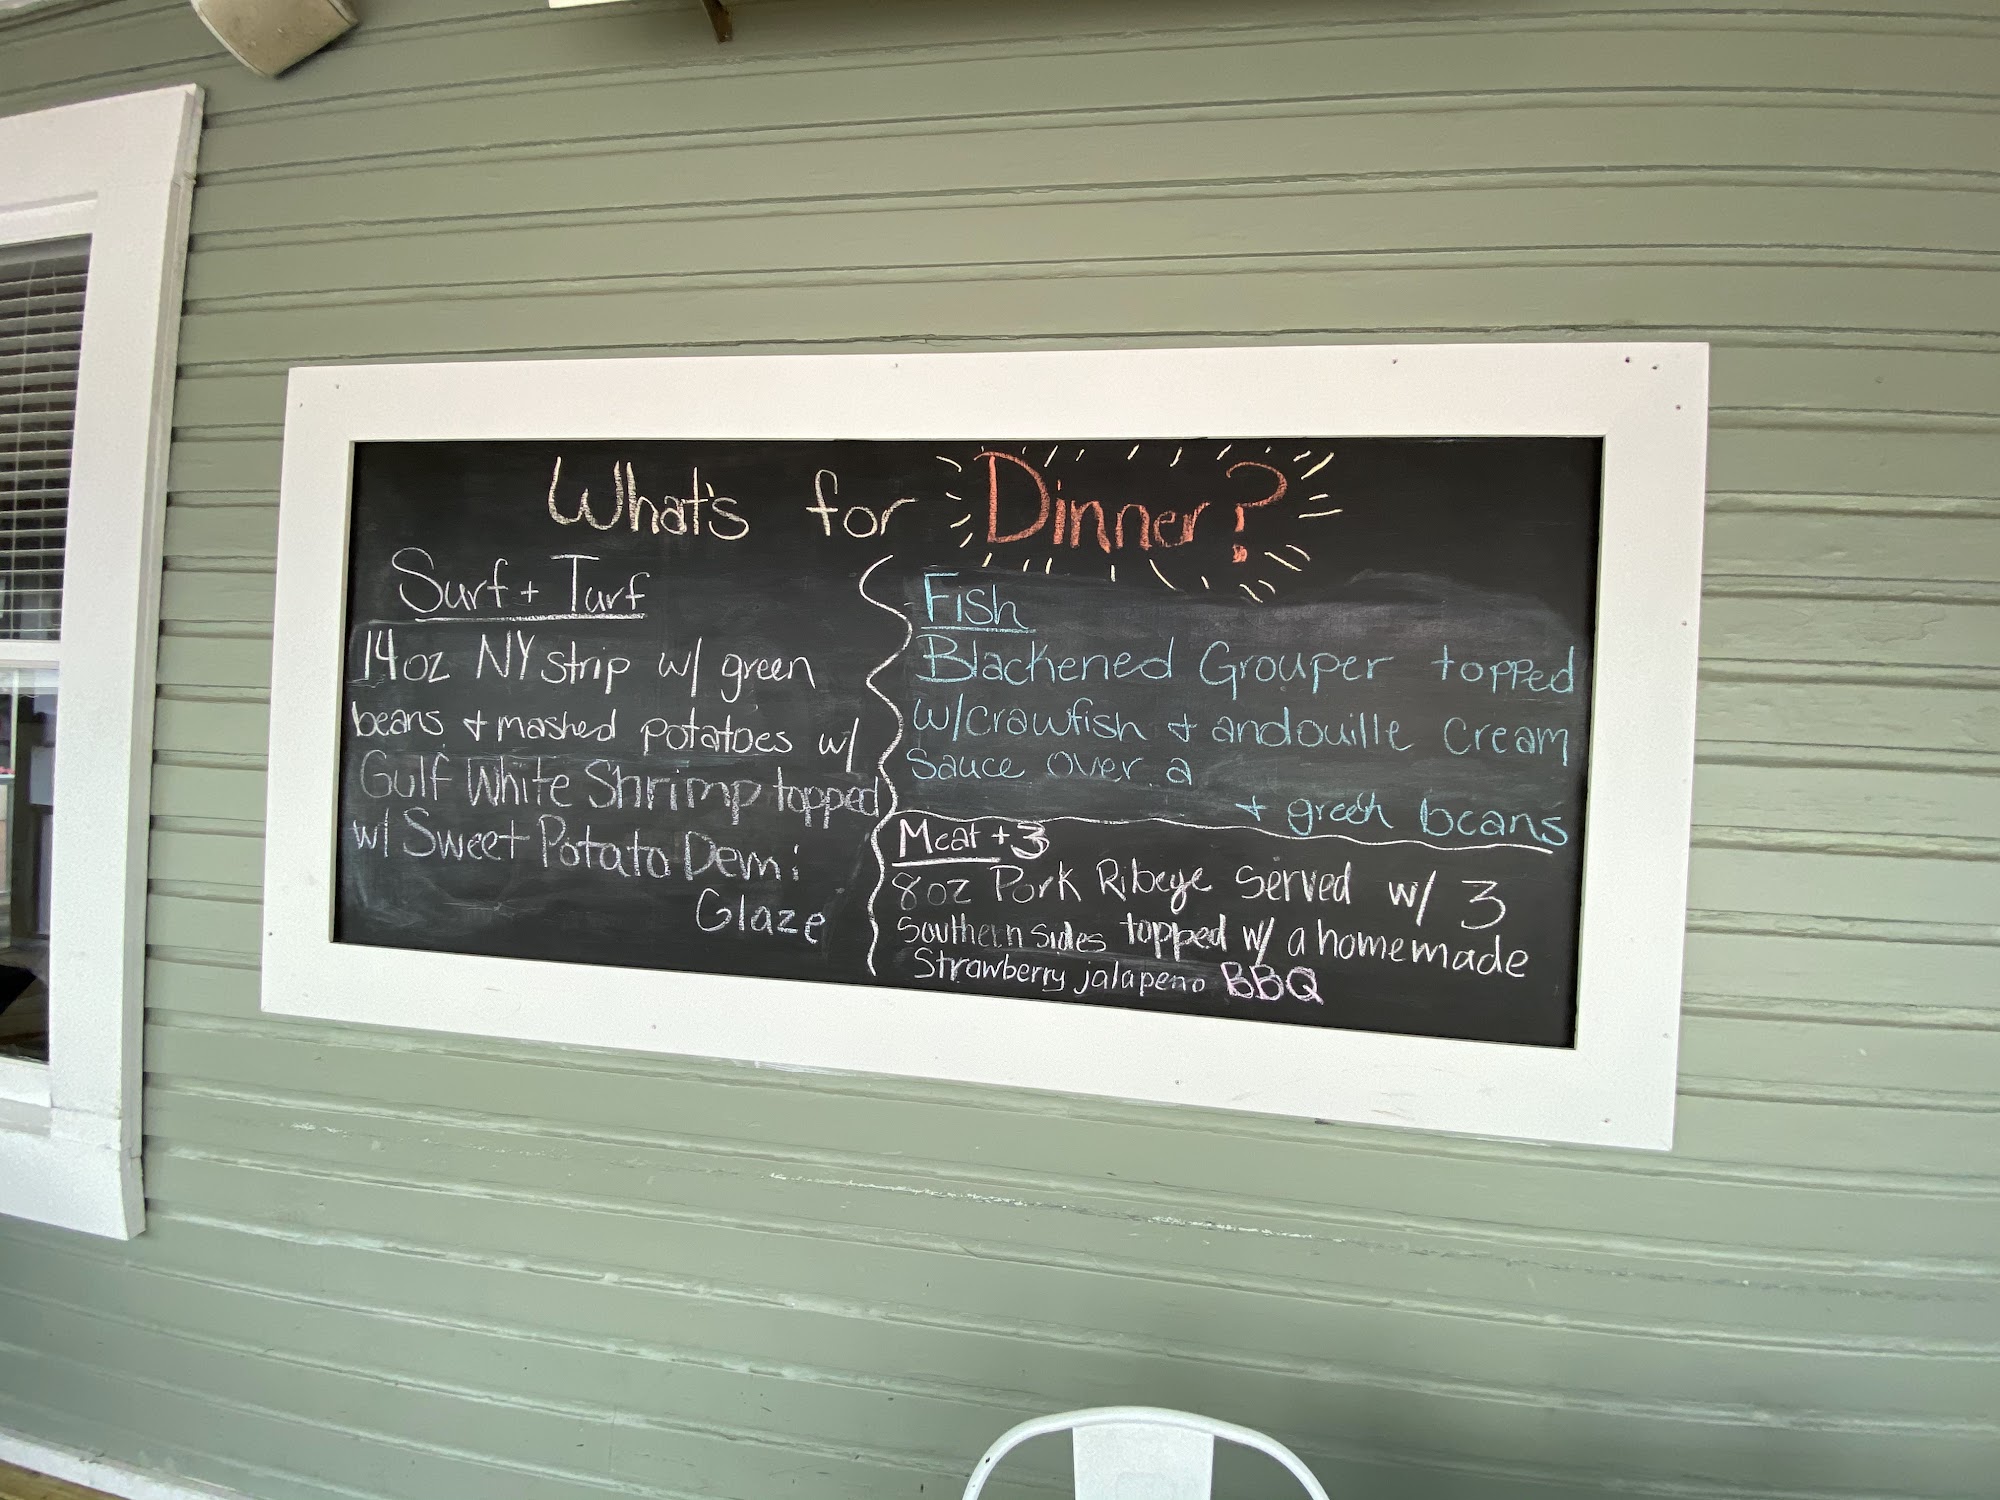 What's for Dinner?
Surf + Turf
14oz NY strip w/ green
beans + mashed potatoes w/
Gulf White Shrimp topped
w/ Sweet Potato Demi
Glaze
Fish
Blackened Grouper topped
w/crawfish + andouille cream
sauce over a
+ green beans
Meat + 3
8oz Pork Ribeye served w/ 3
Southern sides topped w/ a homemade
Strawberry jalapeno BBQ